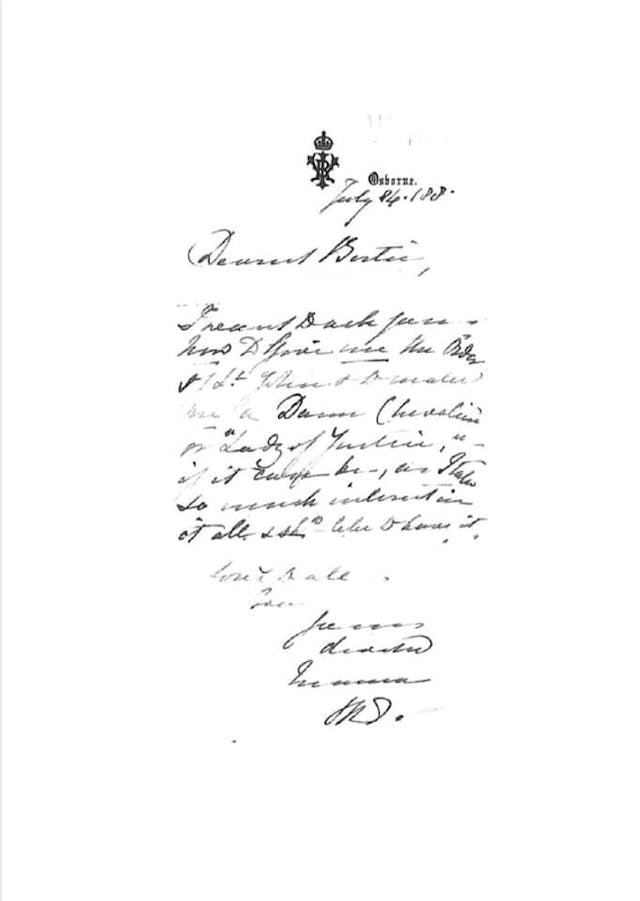 Osborne.
July 24. 188.
Dearest Bertie,
I meant to ask you
how to give me the Order
of St. John & to make
me a Dame Chevalière
or "Lady of Justice,"
if it can be, as I take
so much interest in
it all & shd like to have it.
Love to all
Your
devoted
Mama
VRI.